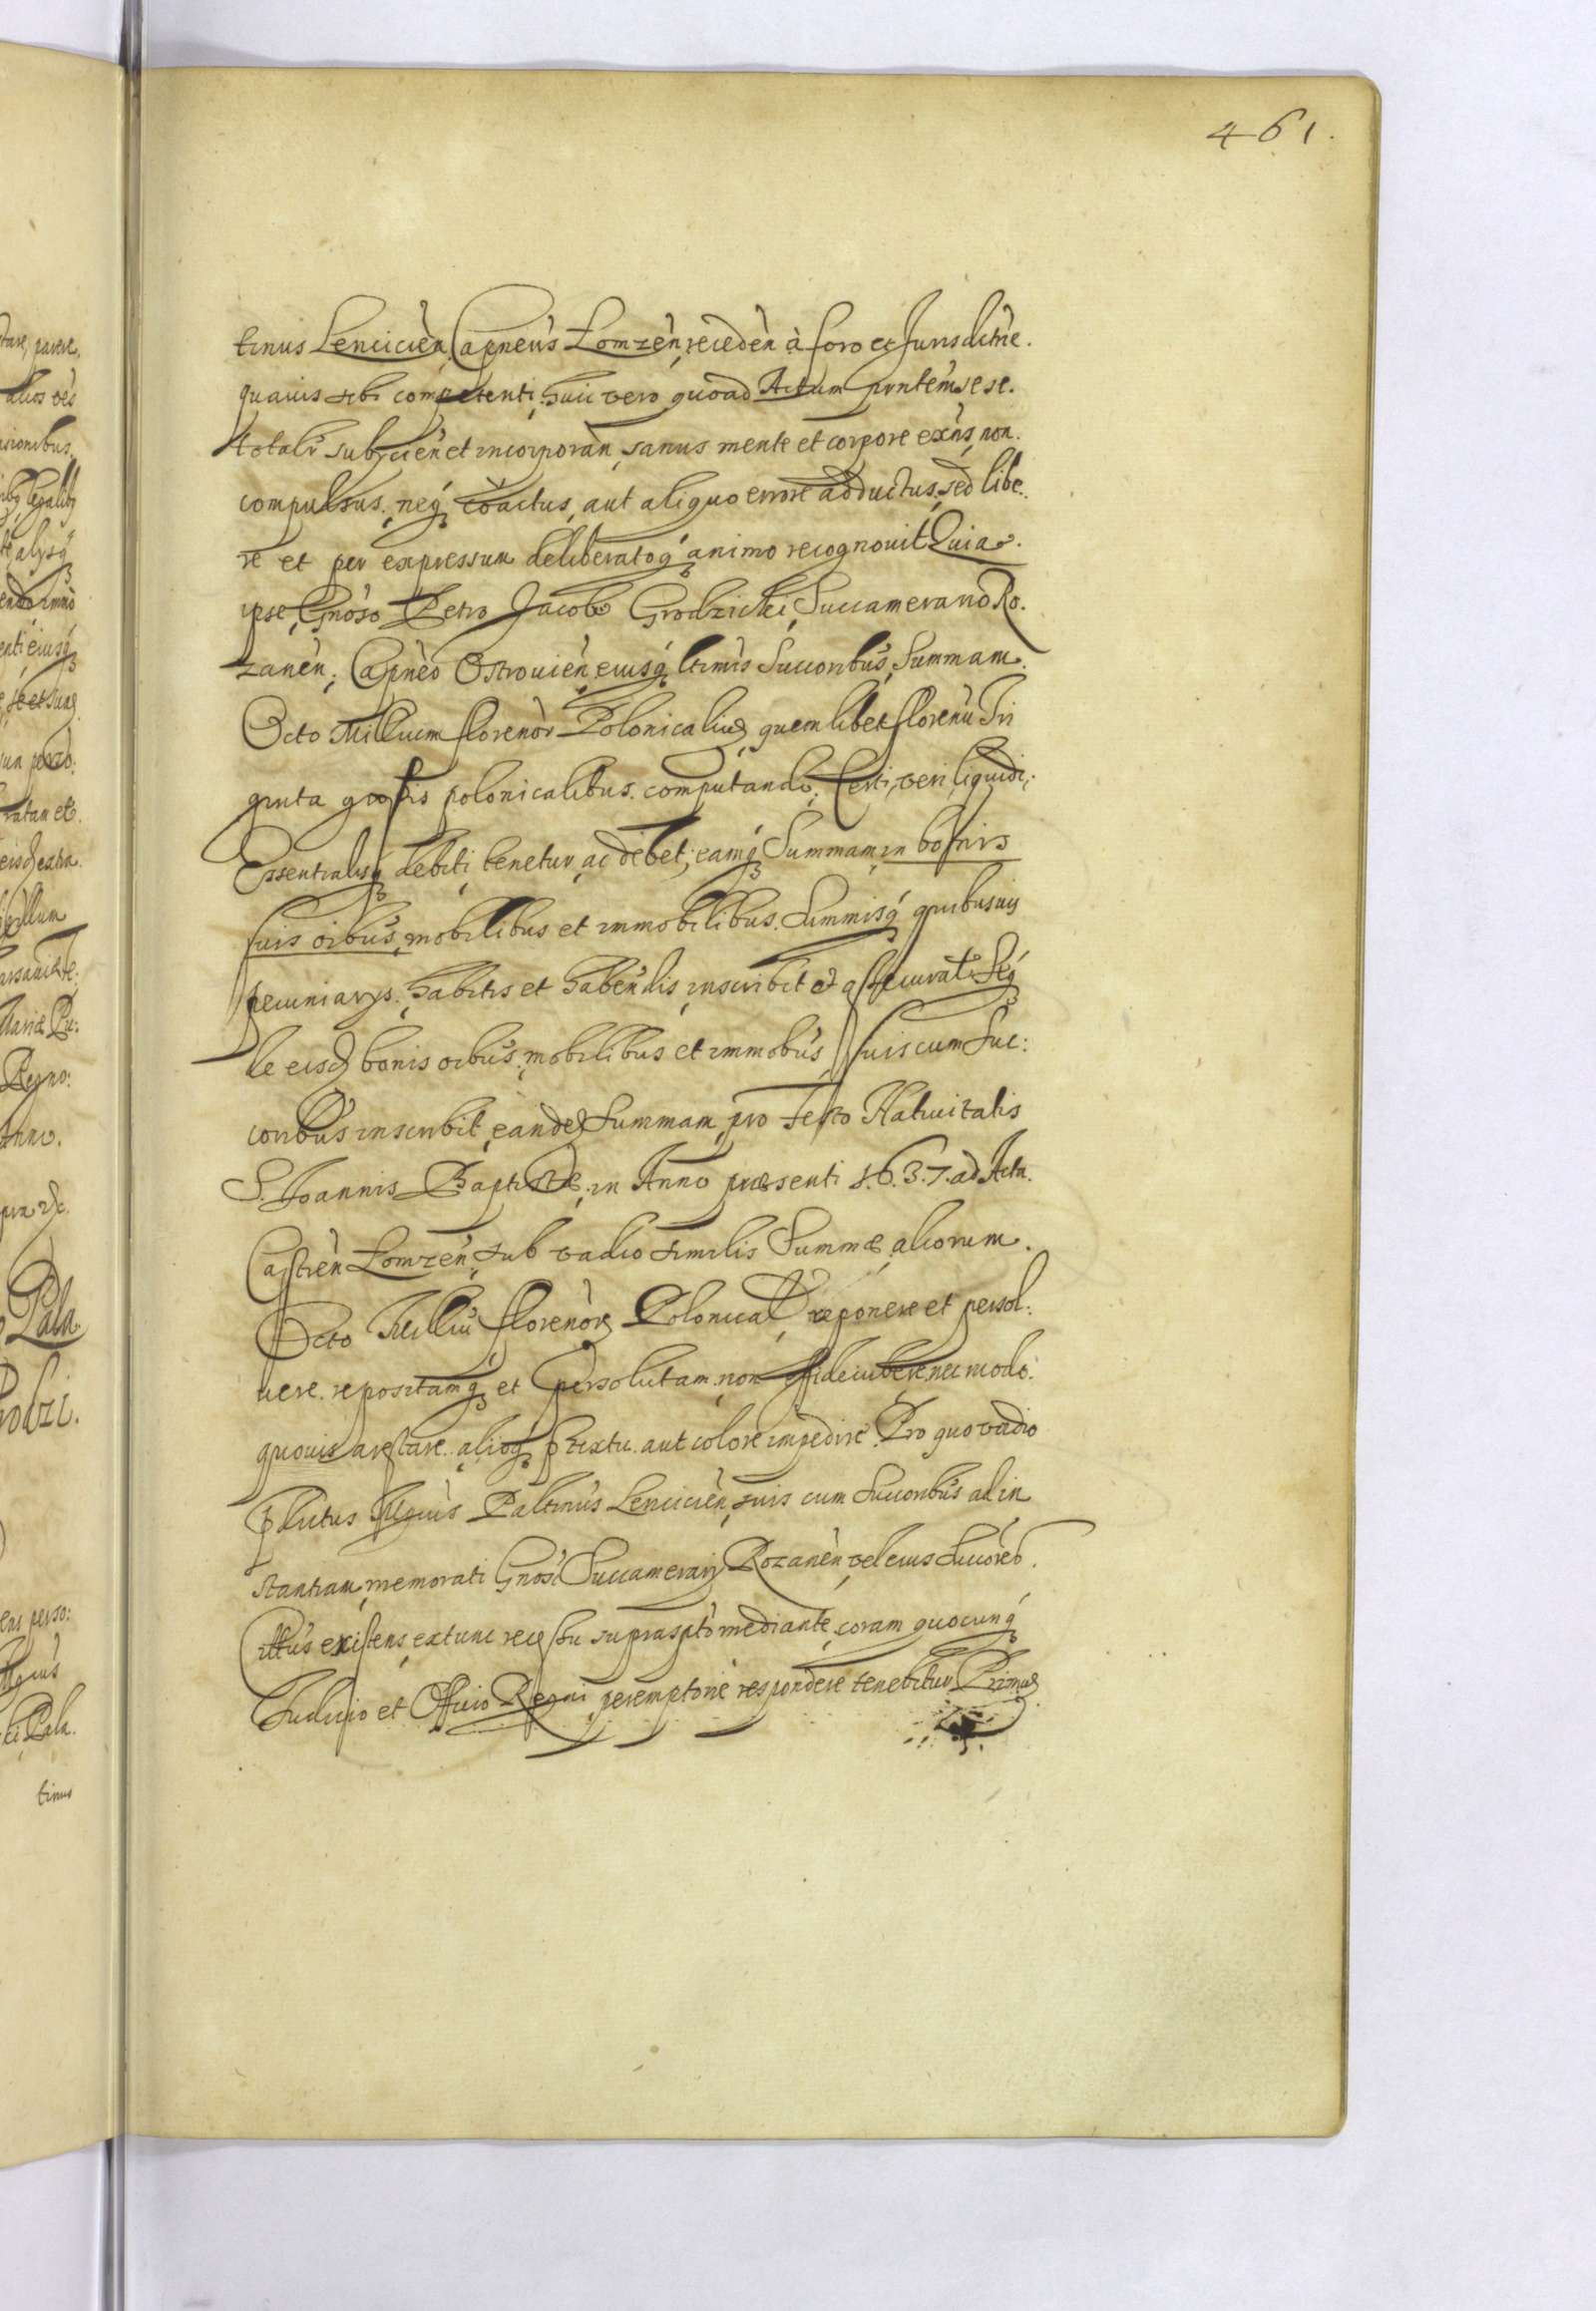 461.
tinus Lencicien, Capneus Łomzen, receden à foro et Jurisdictne.
quavis sibi competenti, huic vero quoad Actum pntem sese.
totalr subijcien et incorporan, sanus mente et corpore exns, non.
compulsus, neq coactus, aut aliquo errore adductus, sed libe.
re et per expressum deliberatoq animo recognovit Quia.
ipse, Gnoso Petro Jacobo Grodzicki, Succamerario Ro.
zanen, Capneo Ostrovien, eiusq ltimis Succoribus, Summam.
Octo Millium florenor Polonicaliu, quemlibet florenu Tri
ginta grossis polonicalibus computando, Certi, veri, liquidi,
Essentialisq debiti tenetur, ac debet, eamq Summam, in bonis
suis oibus, mobilibus et immobilibus, Summisq quibusvis
pecuniarijs, habitis et habendis, inscribit et assecurat. Seq
de eisd bonis oibus, mobilibus et immobus, suis cum Suc:
coribus inscribit, eandem Summam, pro Festo Nativitatis
S. Joannis Baptistæ, in Anno præsenti 1.6.3.7. ad Acta.
Castren Łomzen, sub vadio similis Summæ, aliorum.
Octo Milliu florenor Polonical, reponere et persol:
vere, repositamq et persolutam, non condescendere, nec modo.
quovis arestare, alioq prætextu aut colore impedire. Pro quo vadio
Mgcus Paltinus Lencicien, suis cum Succoribus ad in
stantiam memorati Gnosi Succamerarij Rozanen, vel eius Succoreo.
Citus existens, extunc recessu suprascpto mediante, coram quocunq
Judicio et Officio Regni peremptorie respondere tenebitur Primus
tinus